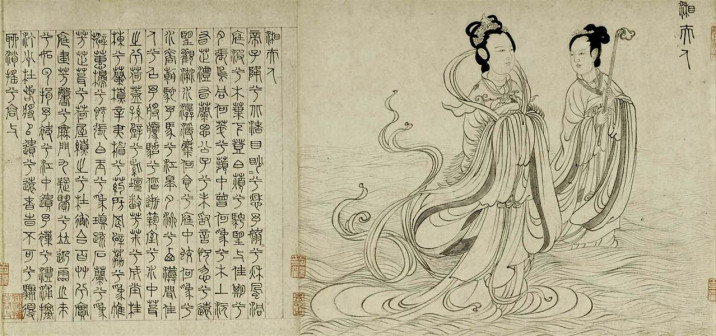 湘夫人
湘夫人
帝子降兮北渚目眇眇兮愁予嫋嫋兮秋風洞
庭波兮木葉下登白薠兮騁望與佳期兮
夕張鳥何萃兮蘋中罾何爲兮木上沅
有芷澧有蘭思公子兮未敢言慌忽兮遠
望觀流水兮潺湲麋何食兮庭中蛟何爲兮
水裔朝馳余馬兮江皋夕濟兮西澨聞佳
人兮召予將騰駕兮偕逝築室兮水中葺
之兮荷蓋蓀壁兮紫壇播芳椒兮成堂桂
棟兮蘭橑辛夷楣兮葯房罔薜荔兮爲帷
擗蕙櫋兮既張白玉兮爲瑱疏石蘭兮爲
芳芷葺兮荷屋繚之兮杜衡合百草兮實
庭建芳馨兮廡門九嶷繽兮並迎靈之來
兮如雲捐余袂兮江中遺余褋兮澧浦搴
汀洲兮杜若將以遺兮遠者時不可兮驟得
聊逍遙兮容與